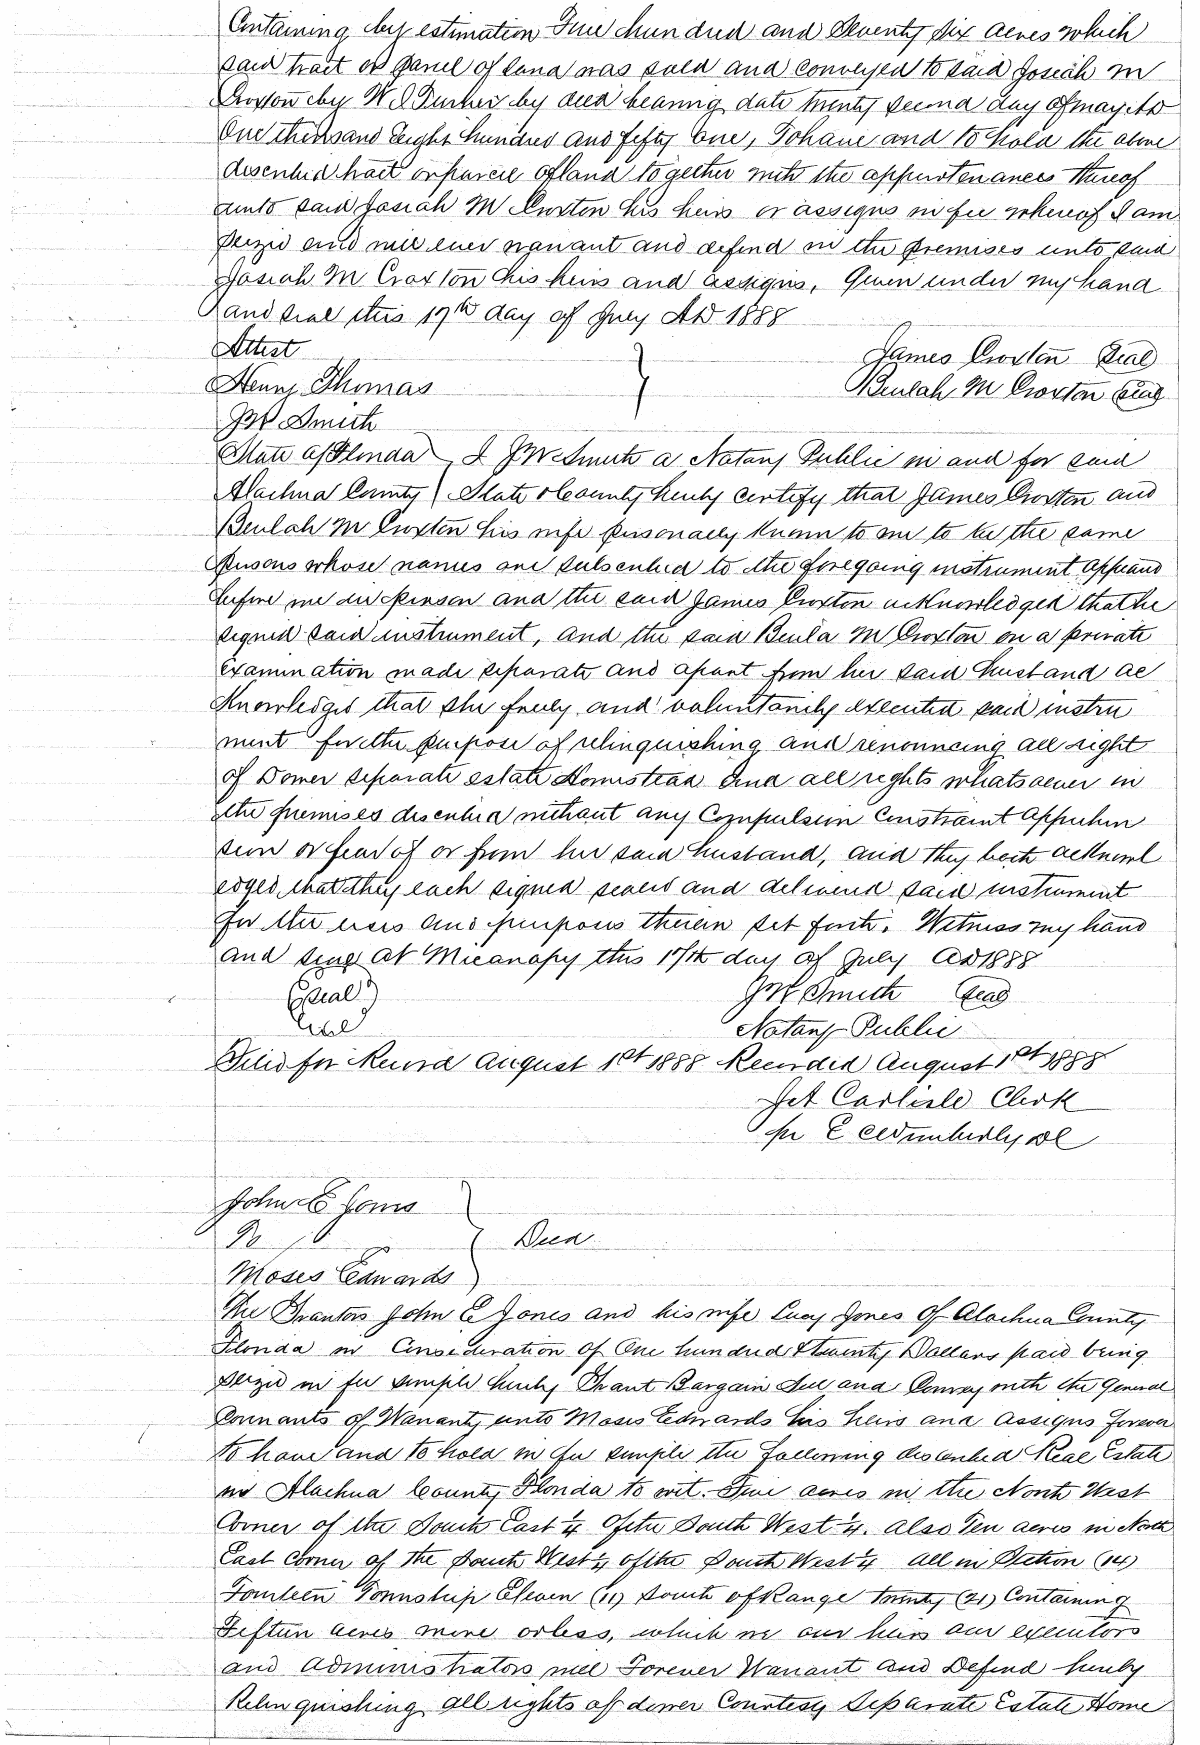 Containing by estimation Five hundred and Seventy Six acres which
said tract or parcel of land was sold and conveyed to said Josiah M
Croxton by W J Turner by deed bearing date twenty second day of May AD
One thousand Eight hundred and fifty One, To have and to hold the above
described tract or parcel of land together with the appurtenances thereof
unto said Josiah M Croxton his heirs or assigns in fee whereof I am
seized and will ever warrant and defend in the premises unto said
Josiah M Croxton his heirs and assigns. Given under my hand
and seal this 17th day of July AD 1888
Attest James Croxton Seal
Henry Thomas Beulah M Croxton Seal
JW Smith
State of Florida I JW Smith a Notary Public in and for said
Alachua County State & County hereby certify that James Croxton and
Beulah M Croxton his wife personally known to me to be the same
persons whose names are subscribed to the foregoing instrument appeared
before me in person and the said James Croxton acknowledged that he
signed said instrument, and the said Beula M Croxton on a private
examination made separate and apart from her said husband ac
knowledged that she freely and voluntarily executed said instru
ment for the purpose of relinquishing and renouncing all right
of Dower separate estate Homestead and all rights whatsoever in
the premises described without any Compulsion Constraint Apprehen
sion or fear of or from her said husband, and they both acknowl
edged that they each signed sealed and delivered said instrument
for the uses and purposes therein set forth. Witness my hand
and seal at Micanopy this 17th day of July AD 1888
Seal JW Smith Seal
Seal Notary Public
Filed for Record August 1st 1888 Recorded August 1st 1888
Carlisle Clerk
per E Wimberly DC
John E Jones
To Deed
Moses Edwards
The Grantors John E Jones and his wife Lucy Jones of Alachua County
Florida in Consideration of One hundred & twenty Dollars paid being
seized in fee simple hereby Grant Bargain Sell and Convey with the General
Covenants of Warranty unto Moses Edwards his heirs and assigns forever
to have and to hold in fee simple the following described Real Estate
in Alachua County Florida to wit. Five acres in the North West
Corner of the South East 1/4 of the South West 1/4. also Ten acres in North
East Corner of the South West 1/4 of the South West 1/4 all in Section (14)
Fourteen Township Eleven (11) South of Range twenty (21) Containing
Fifteen acres more or less, which we our heirs our executors
and administrators will Forever Warrant and Defend hereby
Relinquishing all rights of dower Courtesy Separate Estate Home